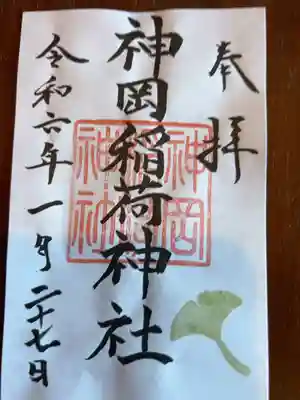 奉拝
神岡稲荷神社
令和六年一月二十七日
神岡
神社